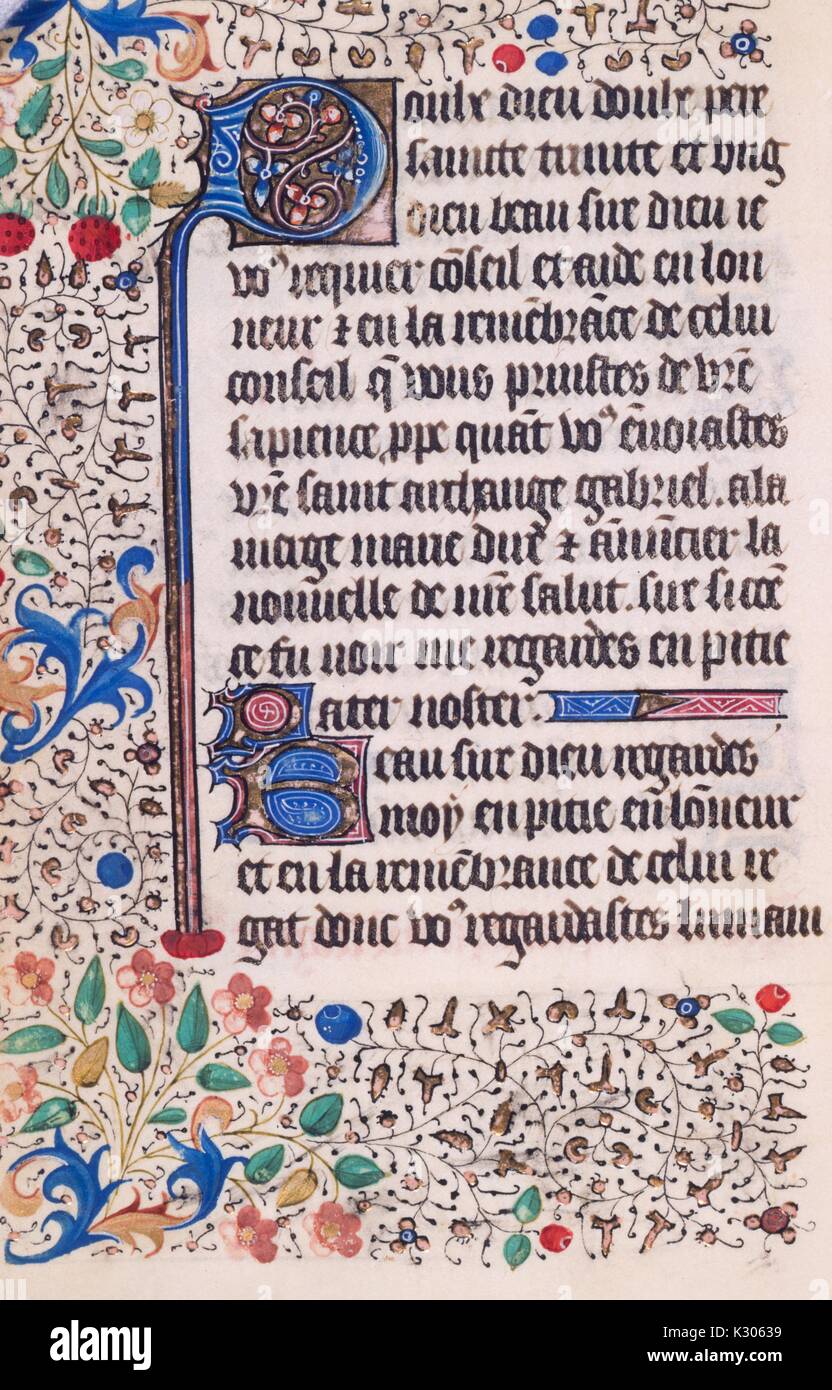 Doulx dieu doulx pere
saincte trinite et vng
dieu beau sire dieu ie
vo⁹ requier cōseil et aide en lon
neur ⁊ en la remēbrāce de celui
conseil q̄ vous prinstes de vr̄e
sapience ꝓpe quāt vo⁹ ēnoiastes
vr̄e saint archange gabriel. a la
vierge marie dire ⁊ ānūcier la
nouuelle de nr̄e salut. sire sicōe
ce fu voir me regardes en pitie
Pater noster.
Beau sire dieu regardes
moy en pitie en lōneur
et en la remēbrance de celui re
gat donc vo⁹ regardastes lumain
alamy
Image ID: K30639
www.alamy.com